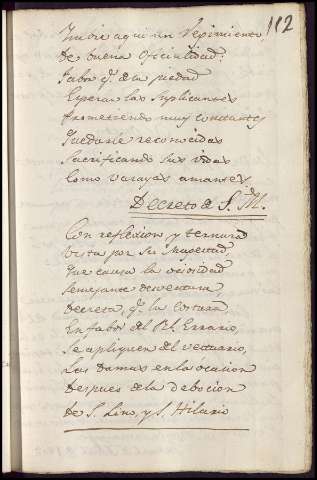 112
Invie aqui un Regimiento
de buena oficialidad:
favor q.e de la piedad
Esperan las Suplicantes
Prometiendo muy constantes
Quedarle reconocidas
Sacrificando sus vidas
Como vasayas amantes
Decreto de S. M.
Con reflexion y ternura
Vista por Su Magestad,
que causa la ociosidad
Semejante desventura,
decreta, q.e la costura,
En favor del R.l Errario,
Se apliquen del vestuario,
Las damas en la ocasion
despues de la debocion
de S. Lino, y S. Hilario